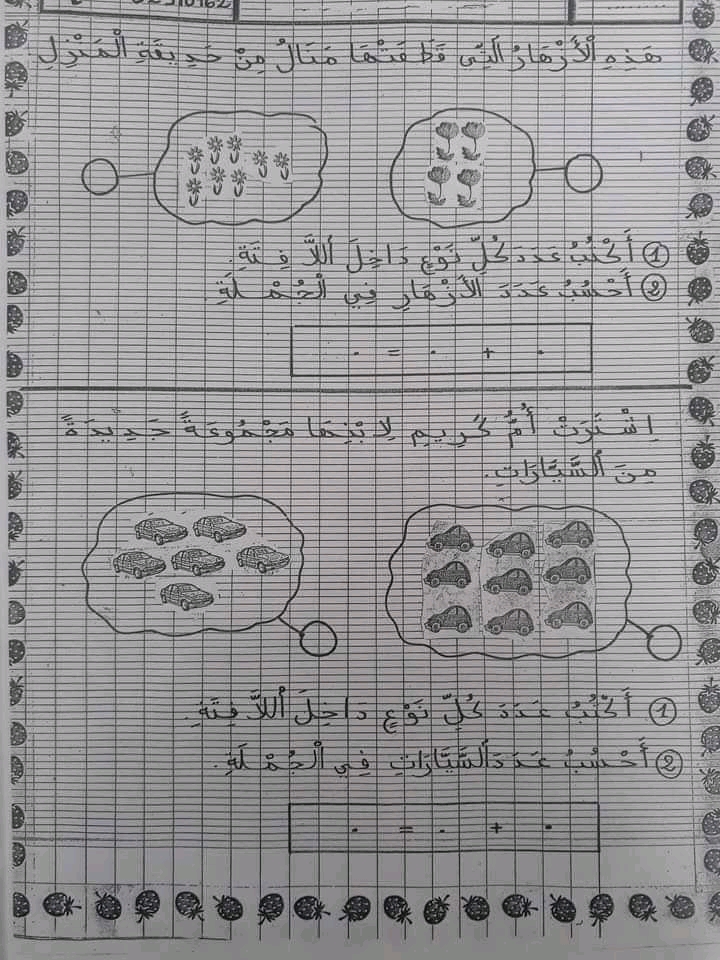 هَذِهِ الْأَزْهَارُ الَّتِي قَطَفَتْهَا مَنَالُ مِنْ حَدِيقَةِ الْمَنْزِلِ
① أَكْتُبُ عَدَدَ كُلِّ نَوْعٍ دَاخِلَ اللَّافِتَةِ.
② أَحْسُبُ عَدَدَ الْأَزْهَارِ فِي الْجُمْلَةِ.
. + . = .
اِشْتَرَتْ أُمُّ كَرِيمِ لِابْنِهَا مَجْمُوعَةً جَدِيدَةً
مِنَ السَّيَّارَاتِ.
① أَكْتُبُ عَدَدَ كُلِّ نَوْعٍ دَاخِلَ اللَّافِتَةِ.
② أَحْسُبُ عَدَدَ السَّيَّارَاتِ فِي الْجُمْلَةِ.
. + . = .